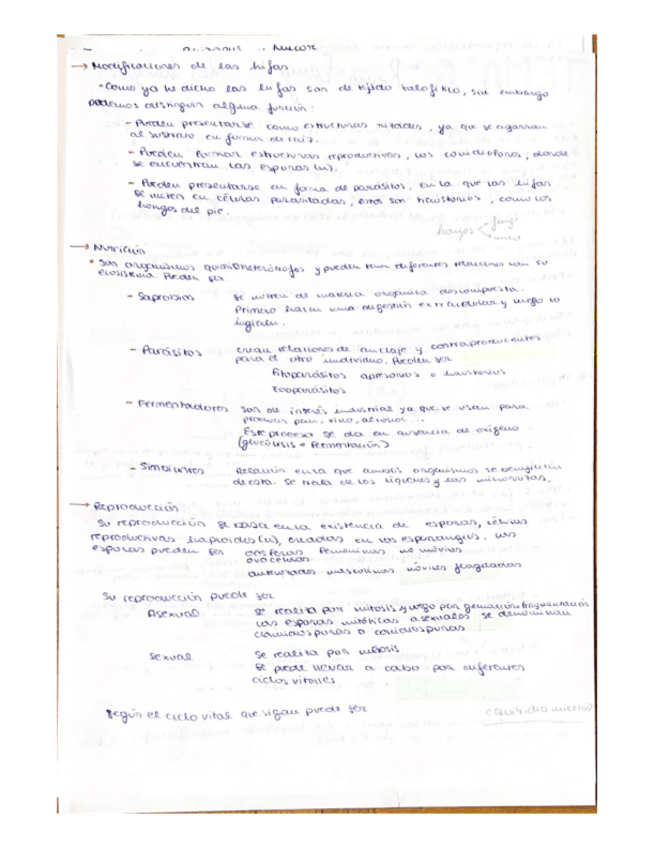 → Modificaciones de las hifas
- Como ya he dicho las hifas son de tejido talofítico, sin embargo
podemos distinguir alguna función:
- Pueden presentarse como estructuras rizoides, ya que se agarran
al sustrato en forma de raíz.
- Pueden formar estructuras reproductivas, los conidióforos, donde
se encuentran las esporas (n).
- Pueden presentarse en forma de parásitos, en la que las hifas
se meten en células parasitadas, estos son haustorios, como los
hongos del pie.
hongos < fungi
mico
→ Nutrición
• Son organismos quimioheterótrofos y pueden tener diferentes relaciones con su
ecosistema. Pueden ser
- Saprobios se nutren de materia orgánica descompuesta.
Primero hacen una digestión extracelular y luego lo
ingieren.
- Parásitos crean relaciones de anclaje y contraproducentes
para el otro individuo. Pueden ser
fitoparásitos apresorios o haustorios
zooparásitos
- Fermentadores son de interés industrial ya que se usan para
producir pan, vino, alcohol...
Este proceso se da en ausencia de oxígeno
(glucólisis + fermentación)
- Simbiontes Relación en la que ambos organismos se benefician
de esta. Se trata de los líquenes y las micorrizas.
→ Reproducción
Su reproducción se basa en la existencia de esporas, células
reproductivas haploides (n), creadas en los esporangios, las
esporas pueden ser oosferas femeninas no móviles
ovocélulas
anterozoides masculinos móviles flagelados
Su reproducción puede ser
Asexual se realiza por mitosis y luego por gemación o fragmentación
las esporas mitóticas asexuales se denominan
clamidosporas o conidiosporas
Sexual se realiza por meiosis
se puede llevar a cabo por diferentes
ciclos vitales
según el ciclo vital que sigan puede ser